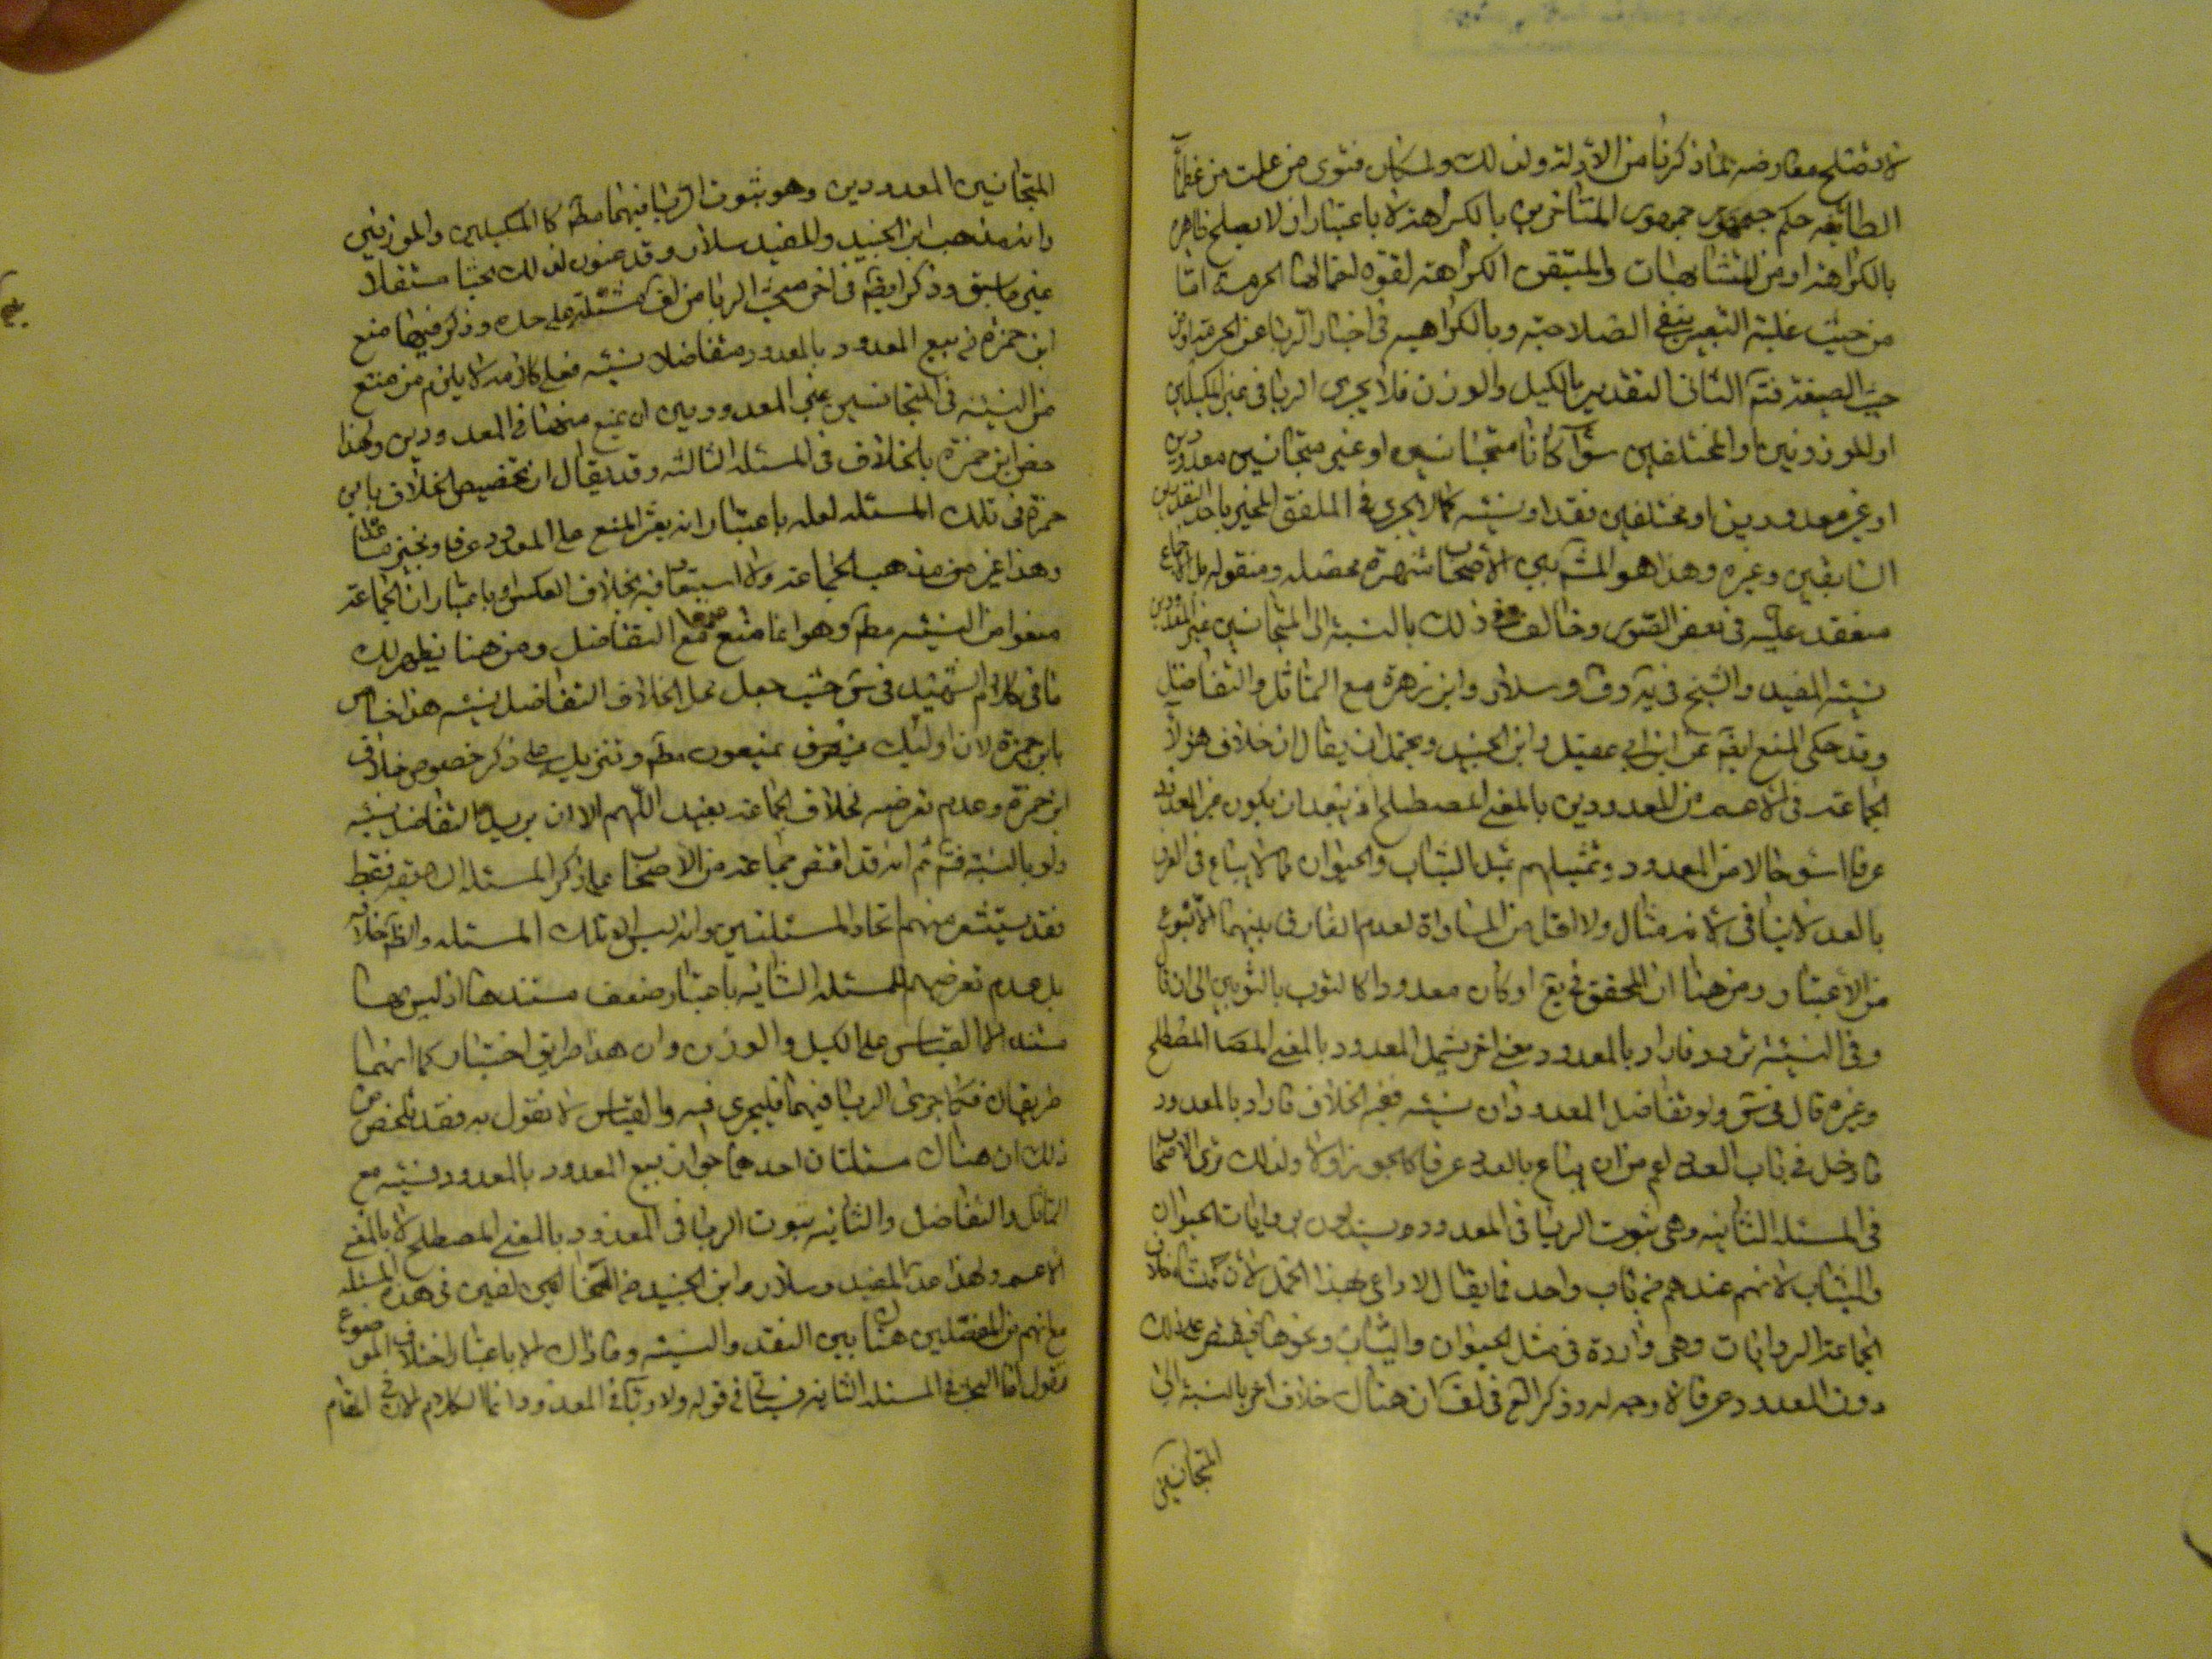 لا تصلح معارضه لما ذكرنا من الادلة ولذلك ولمكان فتوى من علمت من عظماء
الطائفه حكم جمهور المتاخرين بالكراهة لا باعتبار ان لا يصلح ظاهره
بالكراهة او من المتشابهات والمتيقن الكراهة لقوة احتمالها الحرمة اما
من حيث غلبة التعبير بنفي الصلاحية وبالكراهيه في اخبار الربا عن الحرمة او من
حيث الصيغة فتم الثاني التقدير بالكيل والوزن فلا يجري الربا في غير المكيلين
او الموزونين او المختلفين سواء كانا متجانسين او غير متجانسين معدودين
او غير معدودين او مختلفين نقدا ونسيئه كما لا يجري في الملفق المخير باحد التقديرين
السابقين وغيره وهذا هو المشهور بين الاصحاب شهرة محصله ومنقوله بل الاجماع
منعقد عليه في بعض الصور وخالف في ذلك بالنسبة الى المتجانسين غير المعدودين
نسيئه المفيد والشيخ في يه وف وسلار وابن زهرة مع التماثل والتفاضل
وقد حكى المنع ايضا عن ابن ابي عقيل وابن الجنيد ويحتمل ان يقال ان خلاف هؤلاء
الجماعة في الاعم من المعدودين بالمعنى المصطلح اذ يبعد ان يكون غير المعدود
عرفا اسوء حالا من المعدود وتمثيلهم بمثل الثياب والحيوان مما لا يباع في العرف
بالعد لا ينافي لانه مثال ولا اقل من المساواة لعدم الفارق بينهما الا بنوع
من الاعتبار ومن هنا ان المحقق في يع او كان معدودا كالثوب بالثوبين الى ان قال
وفي النسيئة تردد فاراد بالمعدود معنى اخر يشمل المعدود بالمعنى المصطلح
وغيره قال في س ولو تفاضل المعدودان نسيئه ففيه الخلاف فاراد بالمعدود
ما دخل في باب العد اعم من ان يباع بالعد عرفا كالجوز او لا ولذلك ترى الاصحاب
في المسئلة الثانيه وهي ثبوت الربا في المعدود يستدلون بروايات الحيوان
والثياب لانهم عندهم من باب واحد فما يقال الا داعي لهذا الحمل لان منشاء خلاف
الجماعة الروايات وهي واردة في مثل الحيوان والثياب ونحوها فيقتصر على ذلك
دون المعدود عرفا لا وجه له وذكر العلامة في لف ان هناك خلافا اخر بالنسبة الى
المتجانسين
المتجانسين المعدودين وهو ثبوت الربا فيهما مطلقا كالمكيلين والموزونين
وانه مذهب ابن الجنيد والمفيد وسلار وقد عنون لذلك بحثا مستقلا
غير ما سبق وذكر ايضا في اخر مبحث الربا من لف مسئلة على حده وذكر فيها منع
ابن حمزة من بيع المعدود بالمعدود متفاضلا نسيئه فعلى كلامه لا يلزم من منع
من النسيئه في المتجانسين غير المعدودين ان يمنع منها في المعدودين ولهذا
خص ابن حمزة بالخلاف في المسئلة الثالثه وقد يقال ان تخصيص الخلاف بابن
حمزة في تلك المسئلة لعله باعتبار انه يقر المنع على المعدود عرفا ويجيز ما عداه
وهذا غير من مذهب الجماعة ولا استبعاد فيه بخلاف العكس او باعتبار ان الجماعة
منعوا من النسيئه مطلقا وهو انما منع منها مع التفاضل ومن هنا يظهر لك
ما في كلام الشهيد في س حيث جعل محل الخلاف التفاضل نسيئه هذا خاص
بابن حمزة لان اولئك يمنعون مطلقا وتنزيله على ذكر خصوص خلاف
ابن حمزة وعدم تعرضه لخلاف الجماعة بعيد اللهم الا ان يريد التفاضل نسيئه
ولو بالنسبة فتم ثم انه قد اقتصر جماعة من الاصحاب على ذكر المسئلة السابقه فقط
فقد يستشعر منهم اتحاد المسئلتين وانه ليس الا تلك المسئلة والظاهر خلافه
بل عدم تعرضهم للمسئلة الثانيه باعتبار ضعف مستندها اذ ليس لها
مستند الا القياس على الكيل والوزن وان هذا طريق اختبار كما انهما
طريقان فكما جرى الربا فيهما فليجري فيه والقياس لا نقول به فقد تلخص من
ذلك ان هناك مسئلتان احدهما جواز بيع المعدود بالمعدود نسيئه مع
التماثل والتفاضل والثانيه ثبوت الربا في المعدود بالمعنى المصطلح لا بالمعنى
الاعم ولهذا عد المفيد وسلار وابن الجنيد من المخالفين في هذه المسئلة
مع انهم من المفصلين هناك بين النقد والنسيئه وما ذاك الا باعتبار اختلاف الموضوع
فنقول اما البحث في المسئلة الثانيه فسيأتي في قوله ولا ربا في المعدود وانما الكلام الان في المقام